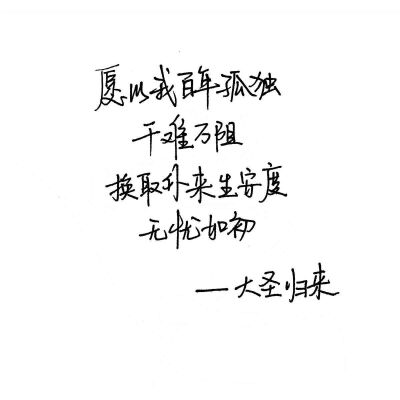 愿以我百年孤独
千难万阻
换取尔来生安度
无忧如初
—大圣归来